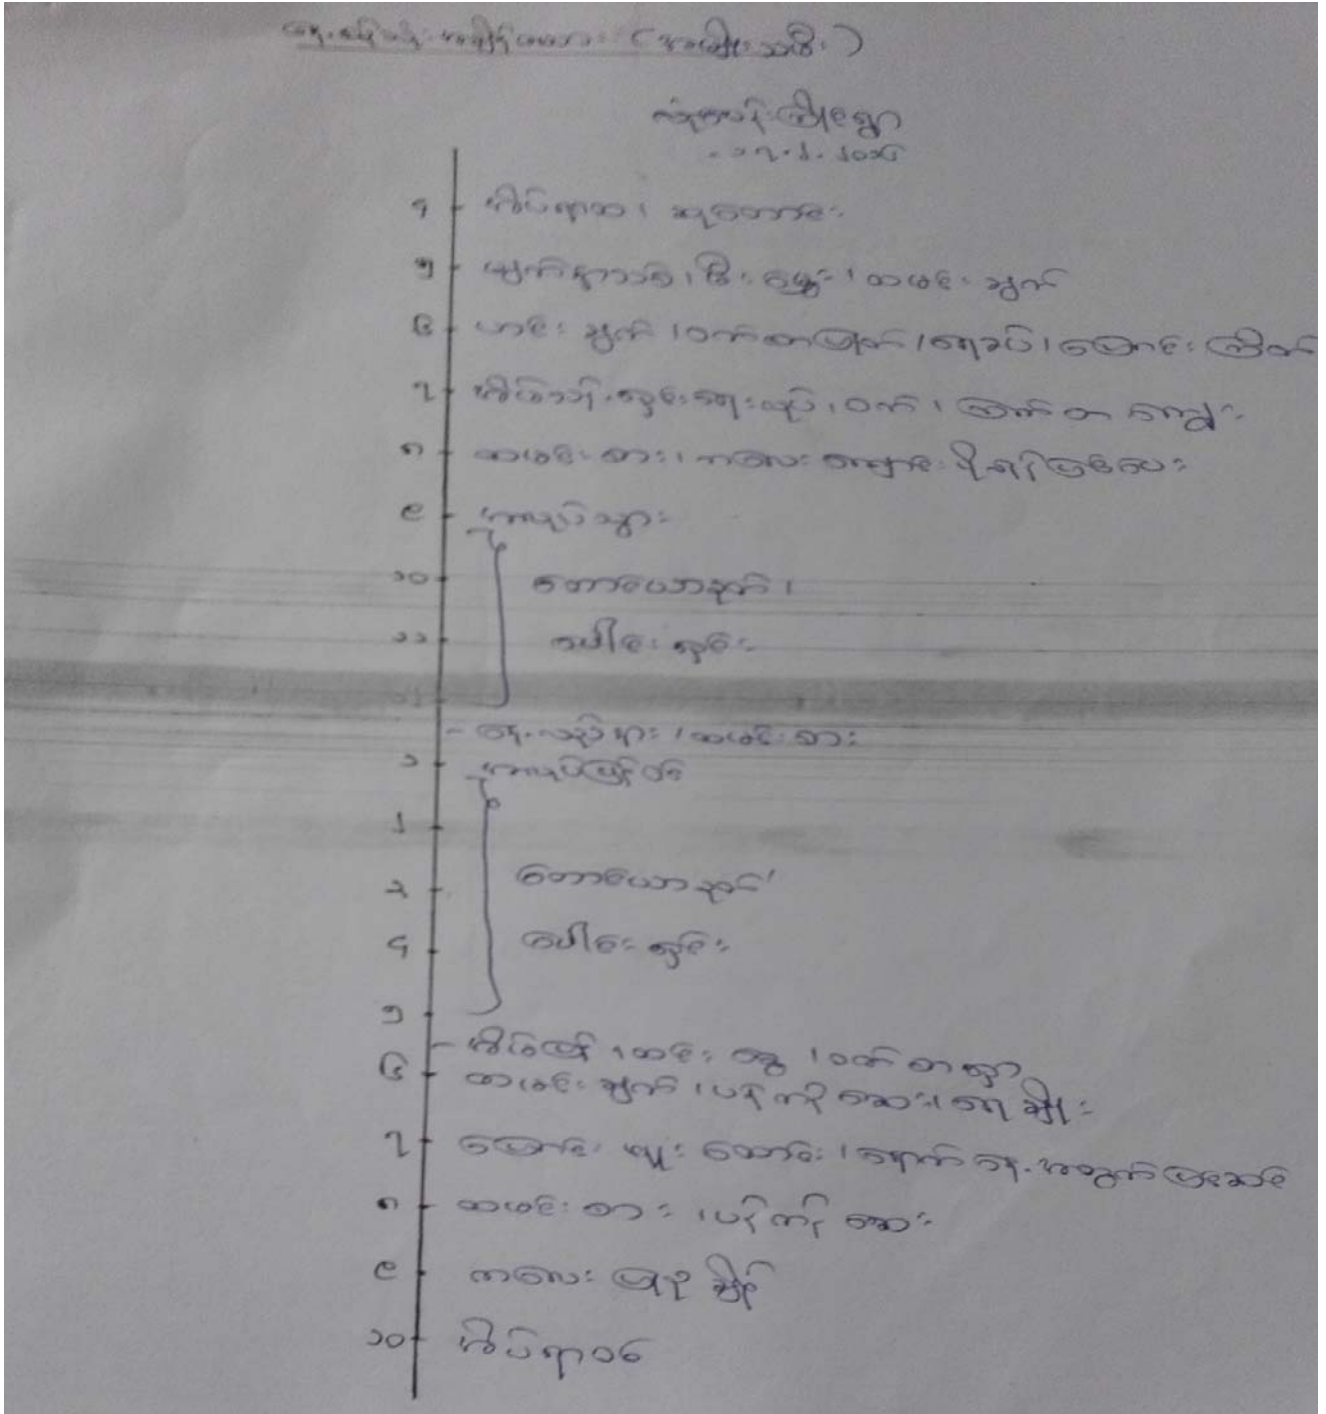 နေ့စဉ်သုံး အချိန်ဇယား (အမျိုးသမီး)
ကြိုးရွာ
၁၇.၂.၂၀၁၆
၄ အိပ်ရာထ၊ ဆုတောင်း
၅ မျက်နှာသစ်၊ မီးမွှေး၊ ထမင်းချက်
၆ ဟင်းချက်၊ ဝက်စာပြုတ်၊ ရေခပ်၊ ပြောင်းကြိတ်
၇ အိမ်သန့်ရှင်းရေးလုပ်၊ ဝက်၊ ကြက်စာကျွေး
၈ ထမင်းစား၊ ကလေးကျောင်းပို့ရန်ပြင်ပေး
၉ အလုပ်သွား
၁၀ တောင်ယာခုတ်၊
၁၁ ပေါင်းရှင်း
၁၂
နေ့လည်နား၊ ထမင်းစား
၁ အလုပ်ပြန်ဝင်
၂
၃ တောင်ယာခုတ်၊
၄ ပေါင်းရှင်း
၅
အိမ်ပြန်၊ ထင်းခွေ၊ ဝက်စာရှာ
၆ ထမင်းချက်၊ ပန်ကန်ဆေး၊ ရေချိုး
၇ ပြောင်းဖူးထောင်း၊ နောက်နေ့အတွက်ပြင်ဆင်
၈ ထမင်းစား၊ ပန်ကန်ဆေး
၉ ကလေးပြုစုချိန်
၁၀ အိပ်ရာဝင်